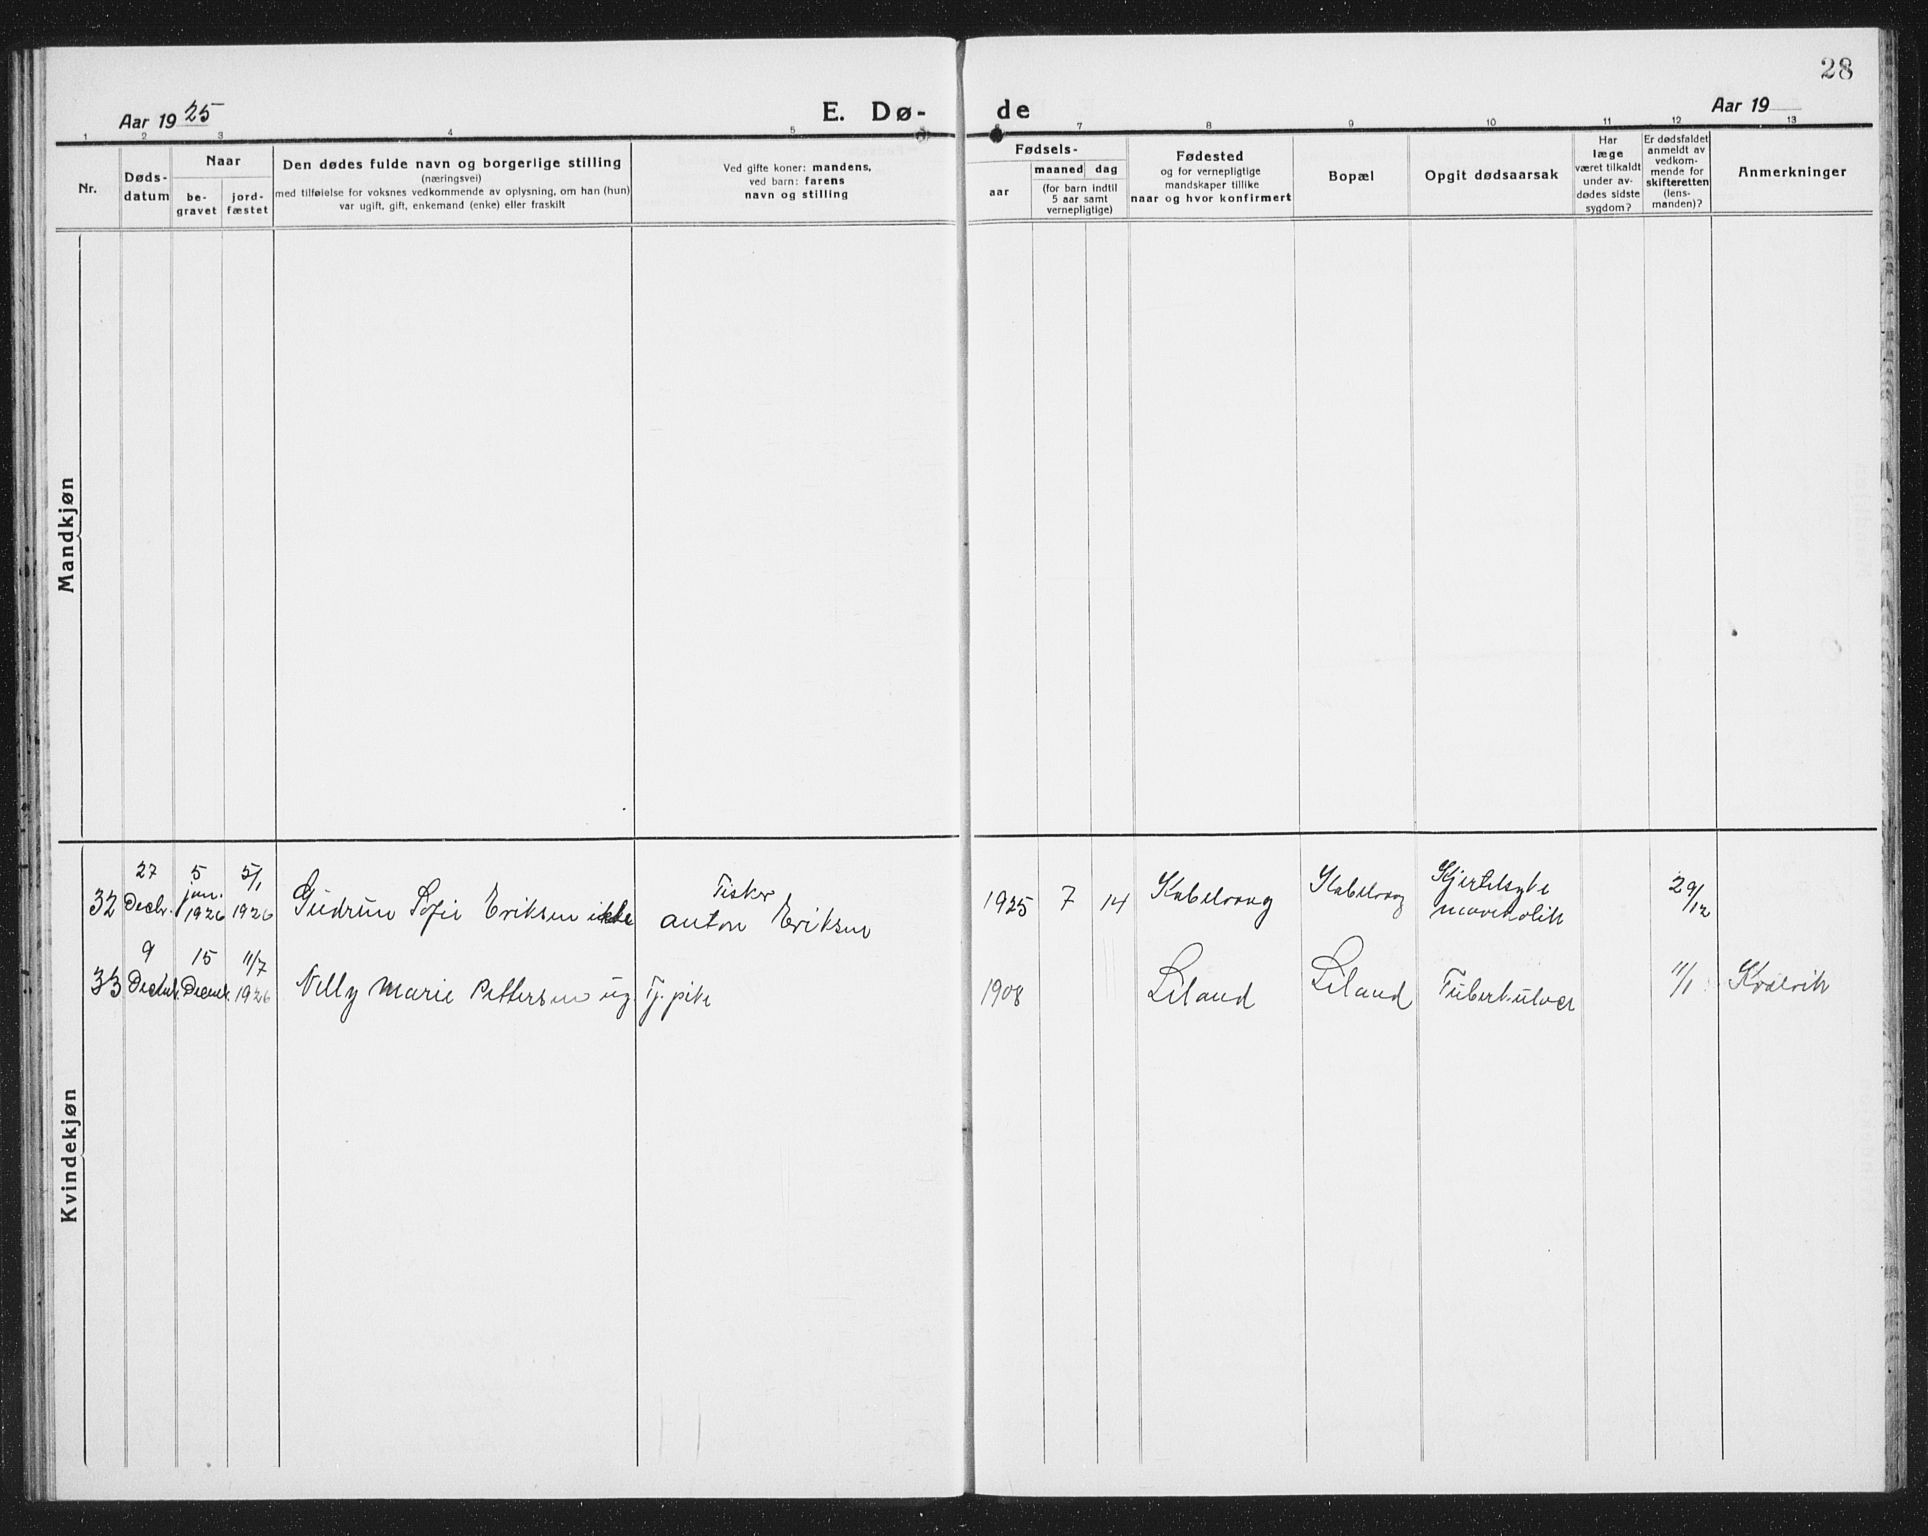 28
Aar 1925
E. Dø-
de
Aar 19
1 2 3 4 5 6 7 8 9 10 11 12 13
Nr.
Døds-
datum
Naar
be-
gravet
jord-
fæstet
Den dødes fulde navn og borgerlige stilling
(næringsvei)
med tilføielse for voksnes vedkommende av oplysning, om han (hun)
var ugift, gift, enkemand (enke) eller fraskilt
Ved gifte koner: mandens,
ved barn: farens
navn og stilling
Fødsels-
aar
maaned dag
(for barn indtil
5 aar samt
vernepligtige)
Fødested
og for vernepligtige
mandskaper tillike
naar og hvor konfirmert
Bopæl
Opgit dødsaarsak
Har
læge
været tilkaldt
under av-
dødes sidste
sygdom?
Er dødsfaldet
anmeldt av
vedkom-
mende for
skifteretten
(lens-
manden)?
Anmerkninger
Mandkjøn
Kvindekjøn
32
27
Decbr.
5
jan.
1926
5/1
1926
Gudrun Sofie Eriksen ikke
Fisker
Anton Eriksen
1925 7 14
Kabelvaag
Kabelvaag
Kjertelsyke
mavekolik
29/12
33
9
15
11/7
1926
Nelly Marie Pettersen ug.
Tj. pike
1908
Liland
Liland
Tuberkulose
11/1
Kvalvik